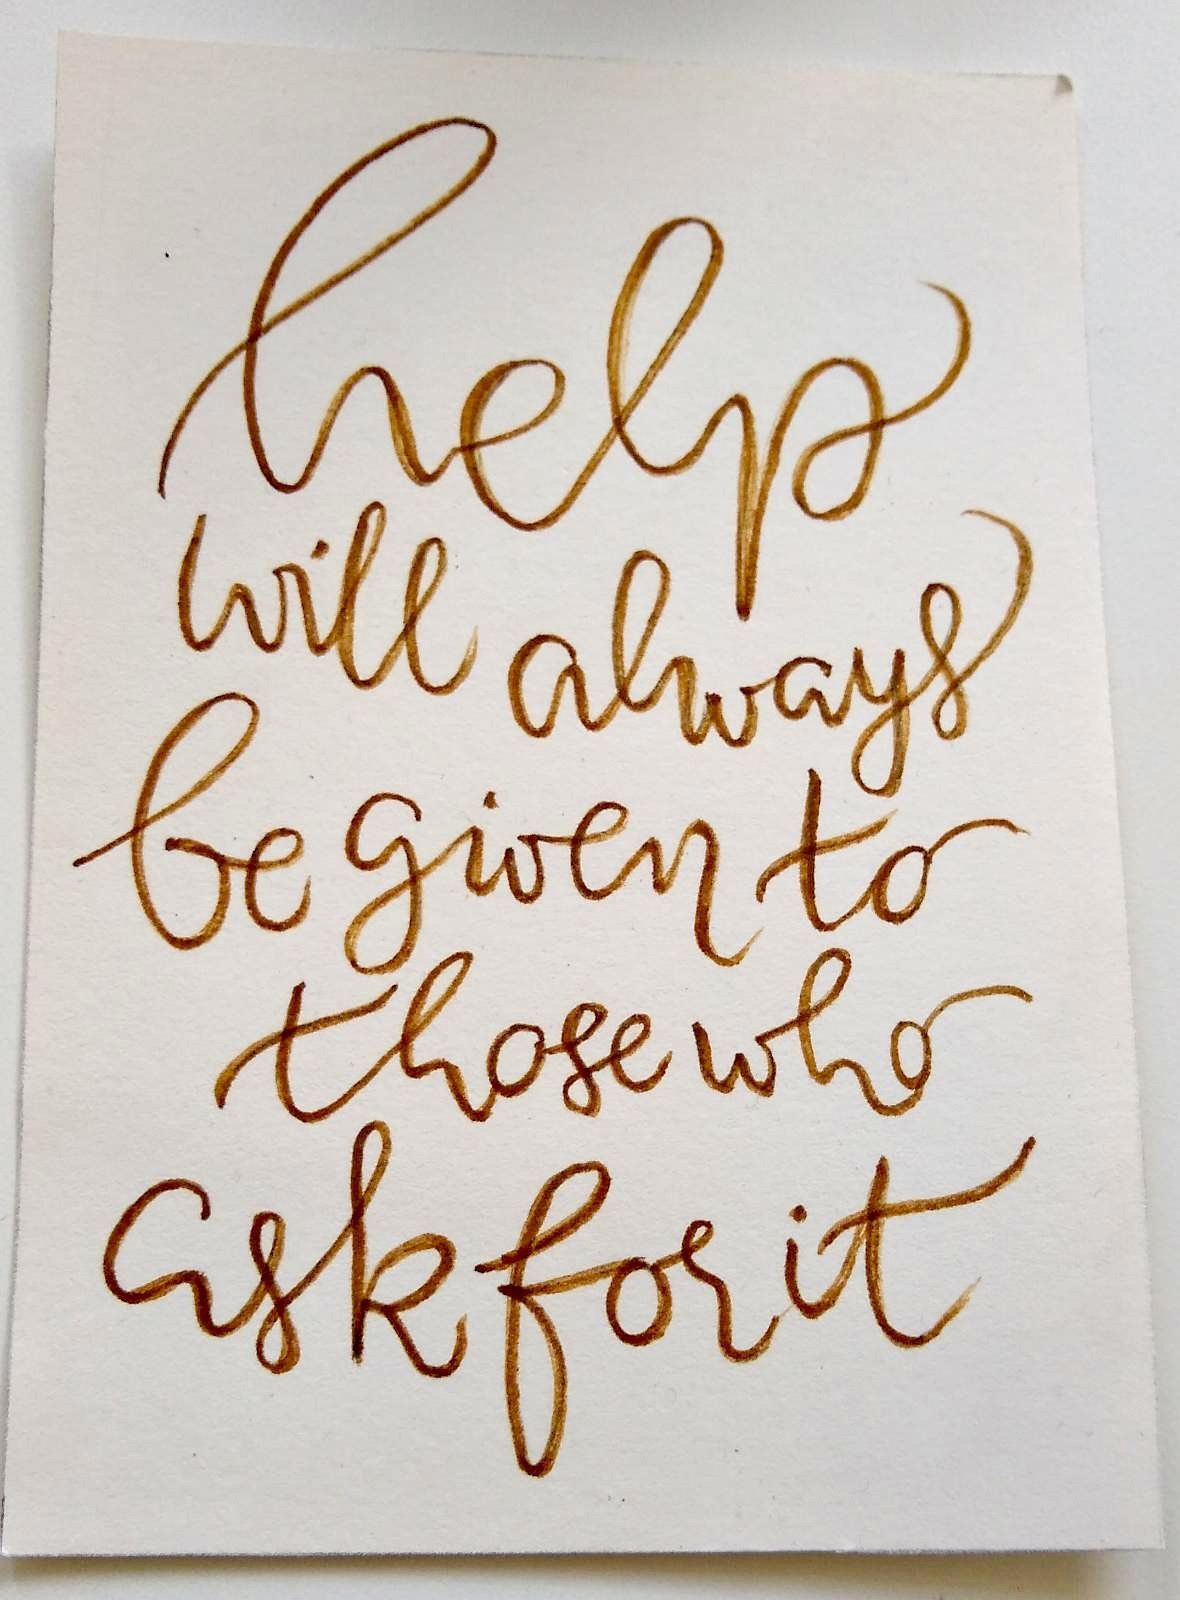 help
will always
be given to
those who
ask for it